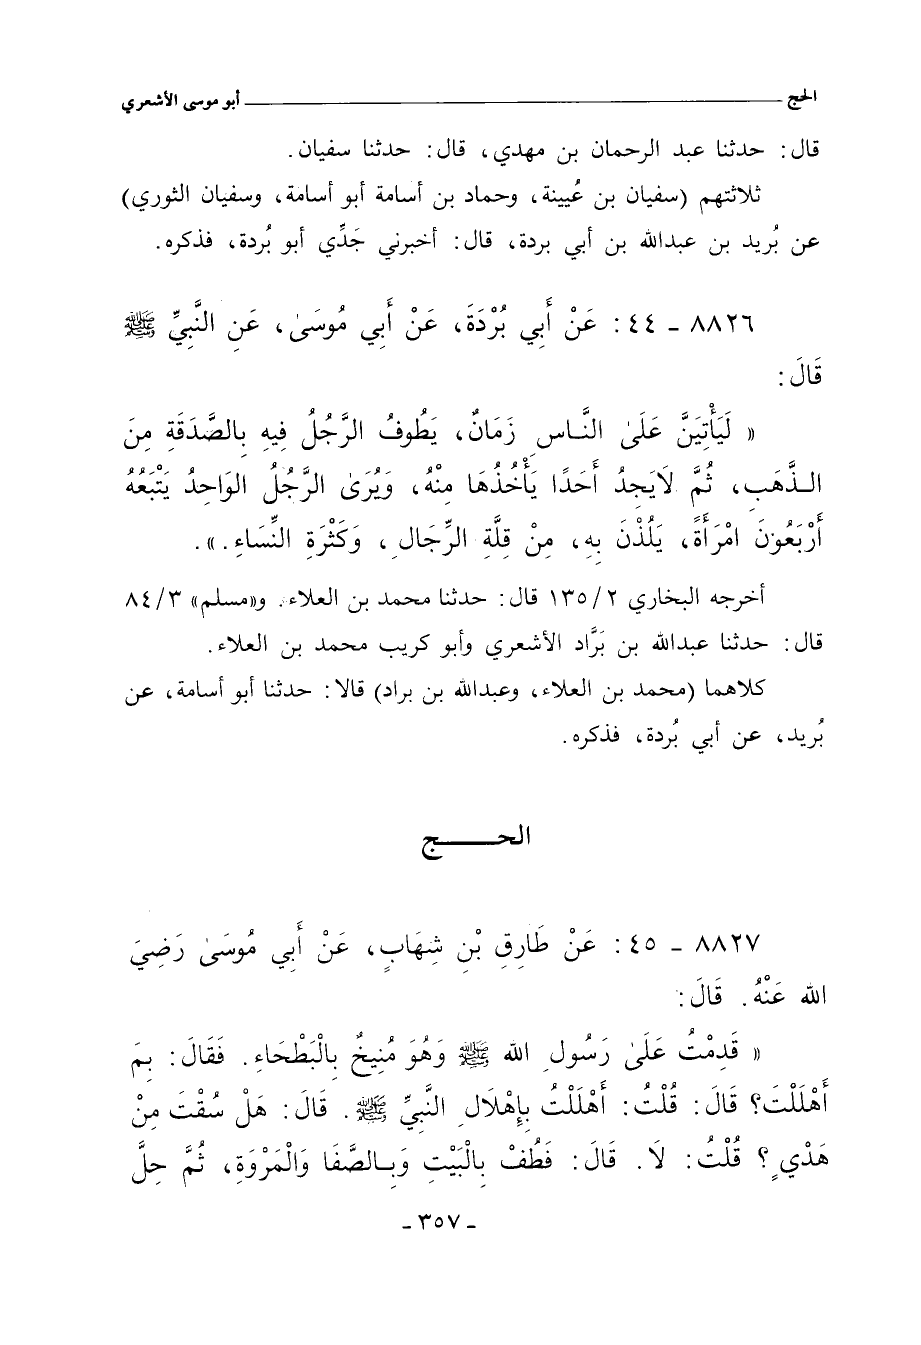 الحج ــــــــــــــــــــــــــــــــ أبو موسى الأشعري
قال: حدثنا عبد الرحمان بن مهدي، قال: حدثنا سفيان.
ثلاثتهم (سفيان بن عُيينة، وحماد بن أسامة أبو أسامة، وسفيان الثوري)
عن بُريد بن عبدالله بن أبي بردة، قال: أخبرني جَدِّي أبو بُردة، فذكره.
٨٨٢٦ - ٤٤: عَنْ أَبِي بُرْدَةَ، عَنْ أَبِي مُوسَىٰ، عَنِ النَّبِيِّ ﷺ
قَالَ:
« لَيَأْتِيَنَّ عَلَىٰ النَّاسِ زَمَانٌ، يَطُوفُ الرَّجُلُ فِيهِ بِالصَّدَقَةِ مِنَ
الذَّهَبِ، ثُمَّ لَايَجِدُ أَحَدًا يَأْخُذُهَا مِنْهُ، وَيُرَىٰ الرَّجُلُ الوَاحِدُ يَتْبَعُهُ
أَرْبَعُونَ امْرَأَةً، يَلُذْنَ بِهِ، مِنْ قِلَّةِ الرِّجَالِ، وَكَثْرَةِ النِّسَاءِ.».
أخرجه البخاري ١٣٥/٢ قال: حدثنا محمد بن العلاء. و«مسلم» ٨٤/٣
قال: حدثنا عبدالله بن بَرَّاد الأشعري وأبو كريب محمد بن العلاء.
كلاهما (محمد بن العلاء، وعبدالله بن براد) قالا: حدثنا أبو أسامة، عن
بُريد، عن أبي بُردة، فذكره.
الحـــــج
٨٨٢٧ - ٤٥: عَنْ طَارِقِ بْنِ شِهَابٍ، عَنْ أَبِي مُوسَىٰ رَضِيَ
الله عَنْهُ. قَالَ:
« قَدِمْتُ عَلَىٰ رَسُولِ الله ﷺ وَهُوَ مُنِيخٌ بِالْبَطْحَاءِ. فَقَالَ: بِمَ
أَهْلَلْتَ؟ قَالَ: قُلْتُ: أَهْلَلْتُ بِإِهْلَالِ النَّبِيِّ ﷺ. قَالَ: هَلْ سُقْتَ مِنْ
هَدْيٍ؟ قُلْتُ: لَا. قَالَ: فَطُفْ بِالْبَيْتِ وَبِالصَّفَا وَالْمَرْوَةِ، ثُمَّ حِلَّ
- ٣٥٧ -